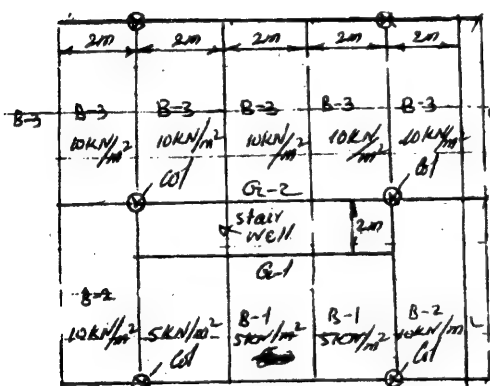 2m 2m 2m 2m 2m
B-3 B-3 B-3 B-3 B-3 B-3
10KN/m² 10KN/m² 10KN/m² 10KN/m² 10KN/m²
Col Col
G-2
stair
well
2m
G-1
B-2 B-1 B-1 B-2
10KN/m² 5KN/m² 5KN/m² 5KN/m² 10KN/m
Col Col